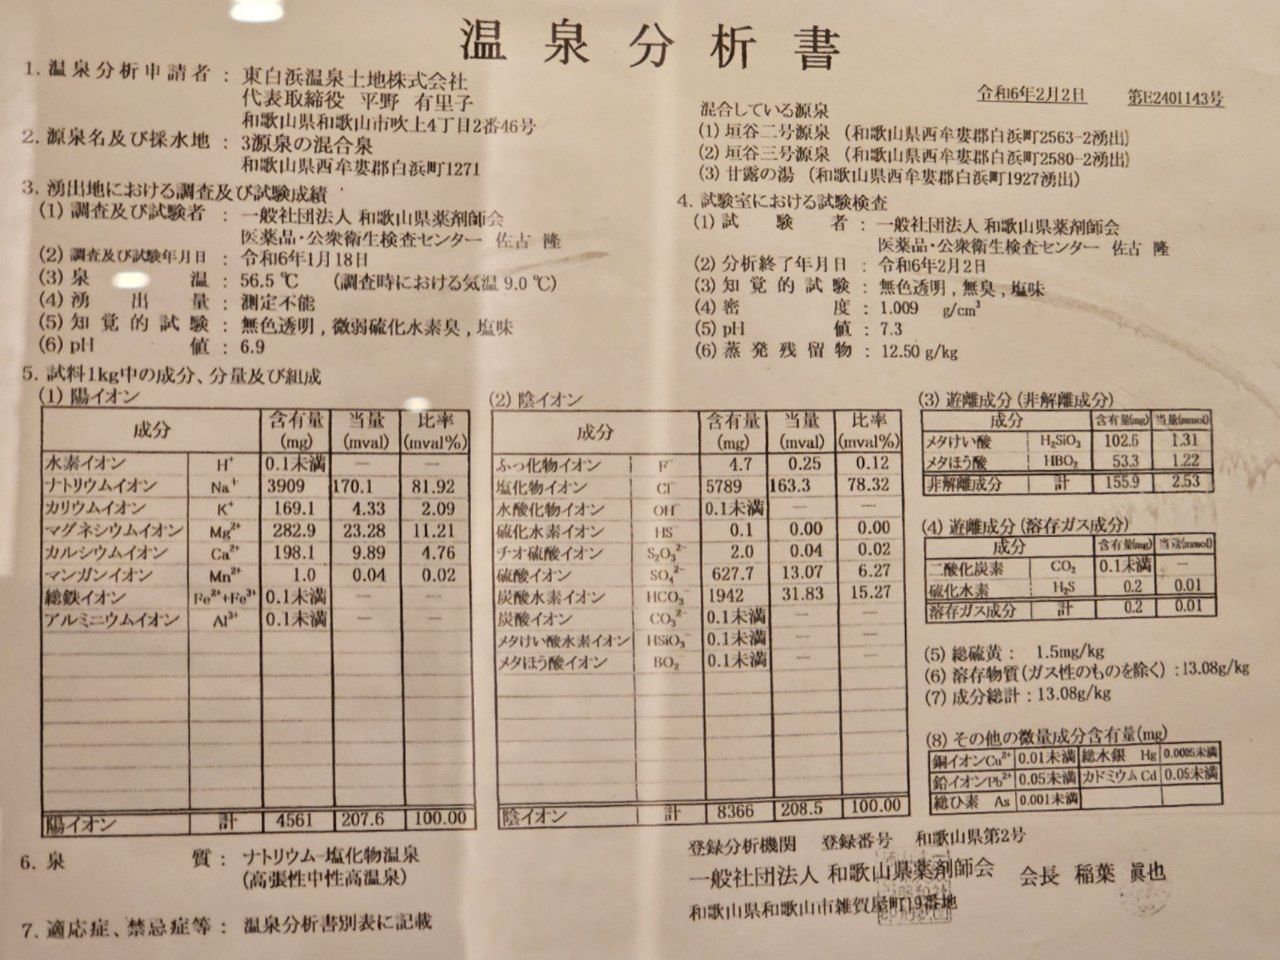 温泉分析書
令和6年2月2日 第E2401143号
1. 温泉分析申請者 : 東白浜温泉土地株式会社
代表取締役 平野 有里子
和歌山県和歌山市吹上4丁目2番46号
2. 源泉名及び採水地 : 3源泉の混合泉
和歌山県西牟婁郡白浜町1271
混合している源泉
(1) 垣谷二号源泉 (和歌山県西牟婁郡白浜町2563-2湧出)
(2) 垣谷三号源泉 (和歌山県西牟婁郡白浜町2580-2湧出)
(3) 甘露の湯 (和歌山県西牟婁郡白浜町1927湧出)
3. 湧出地における調査及び試験成績
(1) 調査及び試験者 : 一般社団法人 和歌山県薬剤師会
医薬品・公衆衛生検査センター 佐古 隆
(2) 調査及び試験年月日 : 令和6年1月18日
(3) 泉温 : 56.5 ℃ (調査時における気温 9.0 ℃)
(4) 湧出量 : 測定不能
(5) 知覚的試験 : 無色透明 , 微弱硫化水素臭 , 塩味
(6) pH値 : 6.9
4. 試験室における試験検査
(1) 試験者 : 一般社団法人 和歌山県薬剤師会
医薬品・公衆衛生検査センター 佐古 隆
(2) 分析終了年月日 : 令和6年2月2日
(3) 知覚的試験 : 無色透明 , 無臭 , 塩味
(4) 密度 : 1.009 g/cm³
(5) pH値 : 7.3
(6) 蒸発残留物 : 12.50 g/kg
5. 試料1kg中の成分、分量及び組成
(1) 陽イオン
成分 含有量(mg) 当量(mval) 比率(mval%)
水素イオン H⁺ 0.1未満 — —
ナトリウムイオン Na⁺ 3909 170.1 81.92
カリウムイオン K⁺ 169.1 4.33 2.09
マグネシウムイオン Mg²⁺ 282.9 23.28 11.21
カルシウムイオン Ca²⁺ 198.1 9.89 4.76
マンガンイオン Mn²⁺ 1.0 0.04 0.02
総鉄イオン Fe²⁺+Fe³⁺ 0.1未満 — —
アルミニウムイオン Al³⁺ 0.1未満 — —
陽イオン 計 4561 207.6 100.00
(2) 陰イオン
成分 含有量(mg) 当量(mval) 比率(mval%)
ふっ化物イオン F⁻ 4.7 0.25 0.12
塩化物イオン Cl⁻ 5789 163.3 78.32
水酸化物イオン OH⁻ 0.1未満 — —
硫化水素イオン HS⁻ 0.1 0.00 0.00
チオ硫酸イオン S₂O₃²⁻ 2.0 0.04 0.02
硫酸イオン SO₄²⁻ 627.7 13.07 6.27
炭酸水素イオン HCO₃⁻ 1942 31.83 15.27
炭酸イオン CO₃²⁻ 0.1未満 — —
メタけい酸水素イオン HSiO₃⁻ 0.1未満 — —
メタほう酸イオン BO₂⁻ 0.1未満 — —
陰イオン 計 8366 208.5 100.00
(3) 遊離成分 (非解離成分)
成分 含有量(mg) 当量(mmol)
メタけい酸 H₂SiO₃ 102.6 1.31
メタほう酸 HBO₂ 53.3 1.22
非解離成分 計 155.9 2.53
(4) 遊離成分 (溶存ガス成分)
成分 含有量(mg) 当量(mmol)
二酸化炭素 CO₂ 0.1未満 —
硫化水素 H₂S 0.2 0.01
溶存ガス成分 計 0.2 0.01
(5) 総硫黄 : 1.5mg/kg
(6) 溶存物質 (ガス性のものを除く) : 13.08g/kg
(7) 成分総計 : 13.08g/kg
(8) その他の微量成分含有量(mg)
銅イオンCu²⁺ 0.01未満 総水銀 Hg 0.0005未満
鉛イオンPb²⁺ 0.05未満 カドミウム Cd 0.05未満
総ひ素 As 0.001未満
6. 泉質 : ナトリウム-塩化物温泉
(高張性中性高温泉)
7. 適応症、禁忌症等 : 温泉分析書別表に記載
登録分析機関 登録番号 和歌山県第2号
一般社団法人 和歌山県薬剤師会 会長 稲葉 眞也
和歌山県和歌山市雑賀屋町19番地